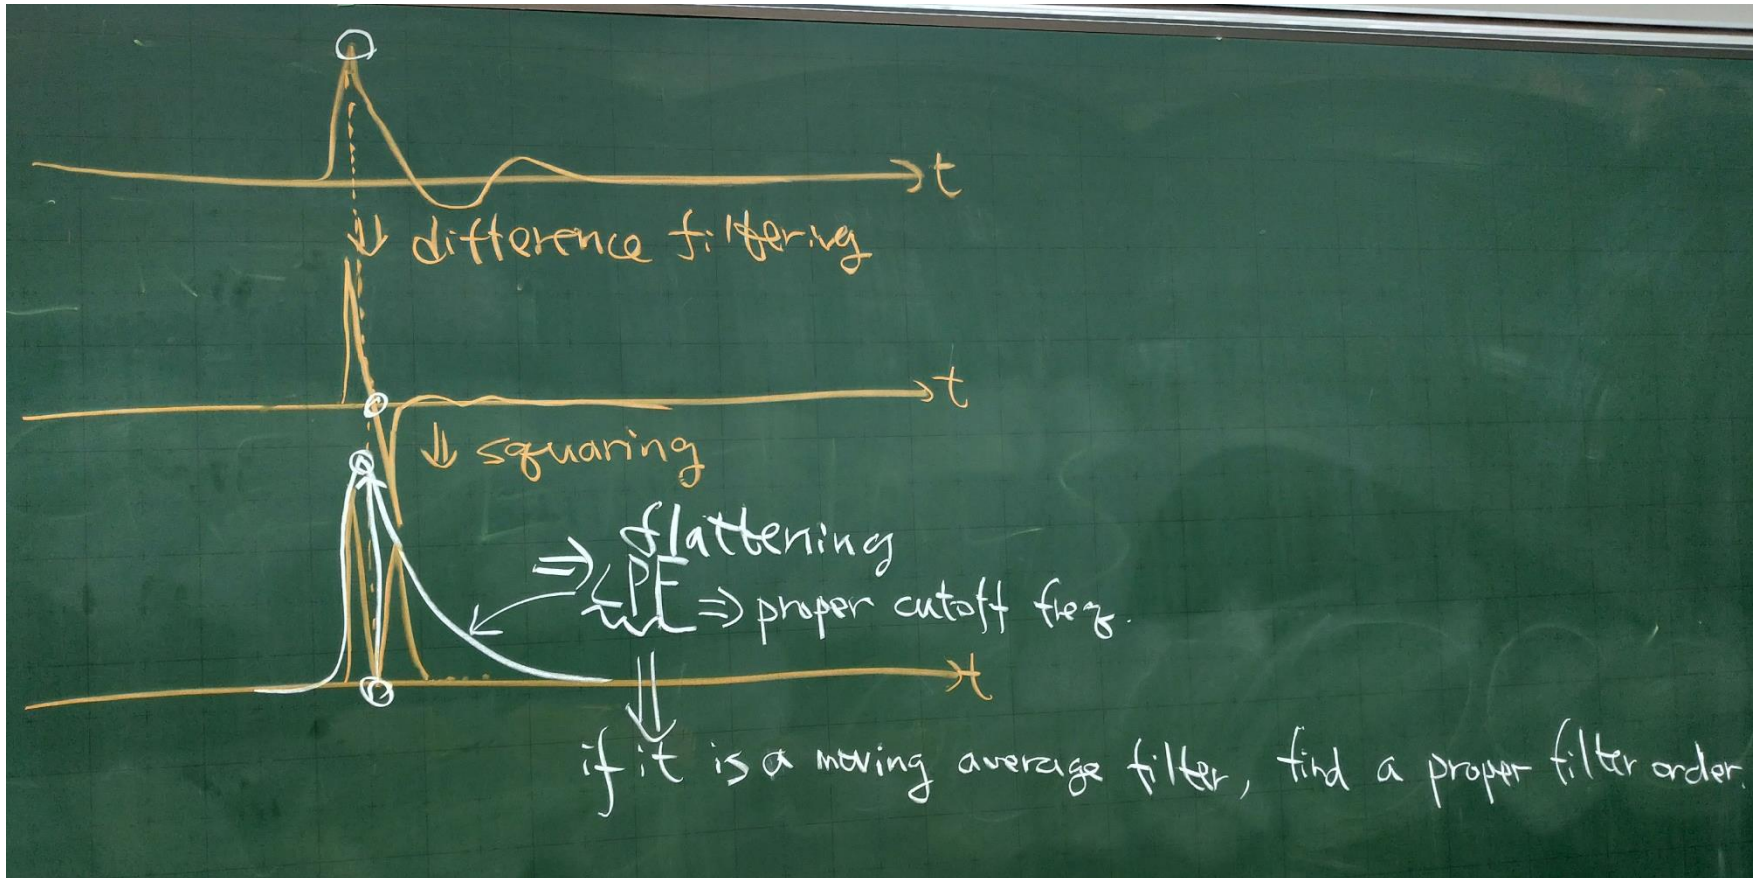 t
⇓ difference filtering
t
⇓ squaring
flattening
⇒ LPF ⇒ proper cutoff freq.
t
if it is a moving average filter, find a proper filter order.